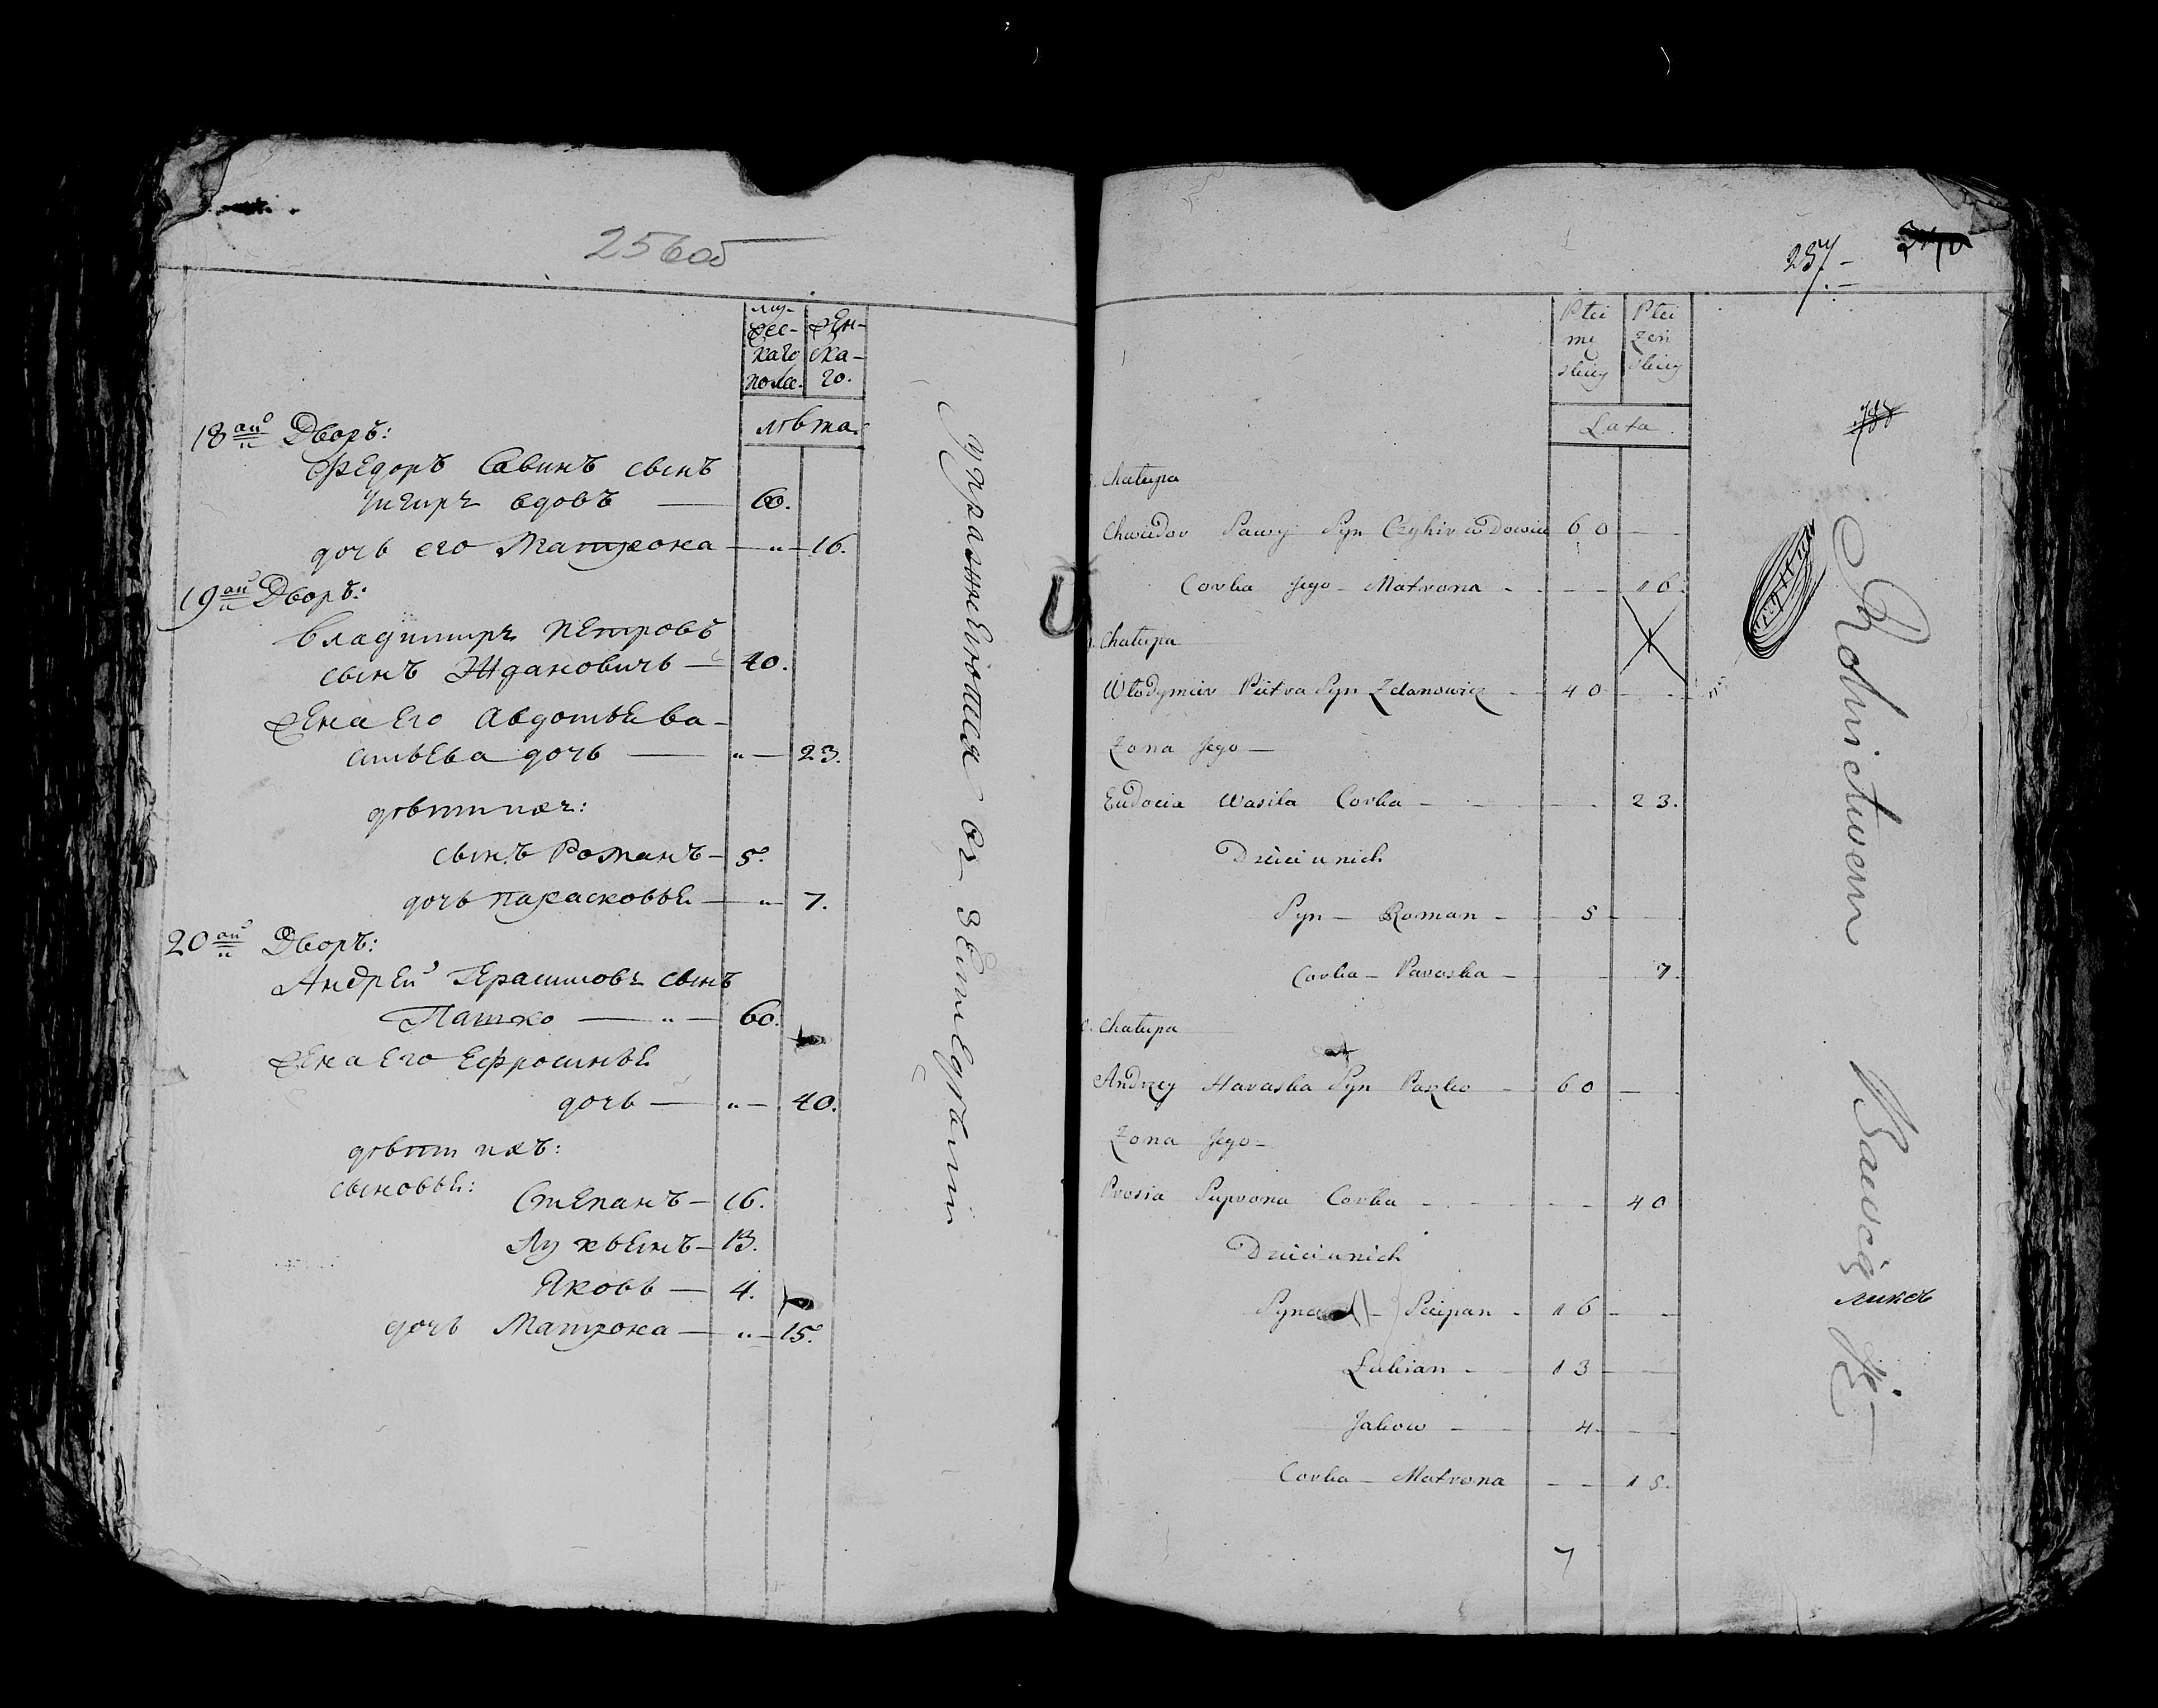 256об
му-
жес-
каго
полу.
жен-
ска-
го.
лѣта.
18ай Дворъ:
Федоръ Савинъ сынъ
Чигирь вдовъ — 60.
дочь его Матрона — „ — 16.
19ай Дворъ:
Владимиръ Петровъ
сынъ Ждановичь — 40.
жена его Авдотья Ва-
сильева дочь — „ — 23.
дѣти ихъ:
сынъ Романъ — 5.
дочь Парасковья — „ — 7.
20ай Дворъ:
Андрей Герасимовъ сынъ
Пашко — „ — 60.
жена его Ефросинья
дочь — „ — 40.
дѣти ихъ:
сыновья: Степанъ — 16.
Лукьянъ — 13.
Яковъ — 4.
дочь Матрона — „ — 15.
упражняются въ земледѣлiи
257.
Płci
mę
skiey
Płci
żeń
skiey
Lata.
Chałupa
Chwiedor Sawy Syn Czyhir wdowiec 60 —
Corka Jego — Matrona — — 16.
Chałupa
Włodymier Piotra Syn Zdanowicz — 40 —
Zona Jego —
Eudocia Wasila Corka — — 23.
Dzieci u nich
Syn — Roman — 5 —
Corka — Paraska — 7.
Chałupa
Andrzey Haraska Syn Paszko — 60 —
Zona Jego —
Prosia Suprona Corka — — 40
Dzieci u nich
Syn — Sciepan — 16 —
Łukian — 13 —
Jakow — 4 —
Corka — Matrona — — 15.
7
Rolnictwem Bawią
się —